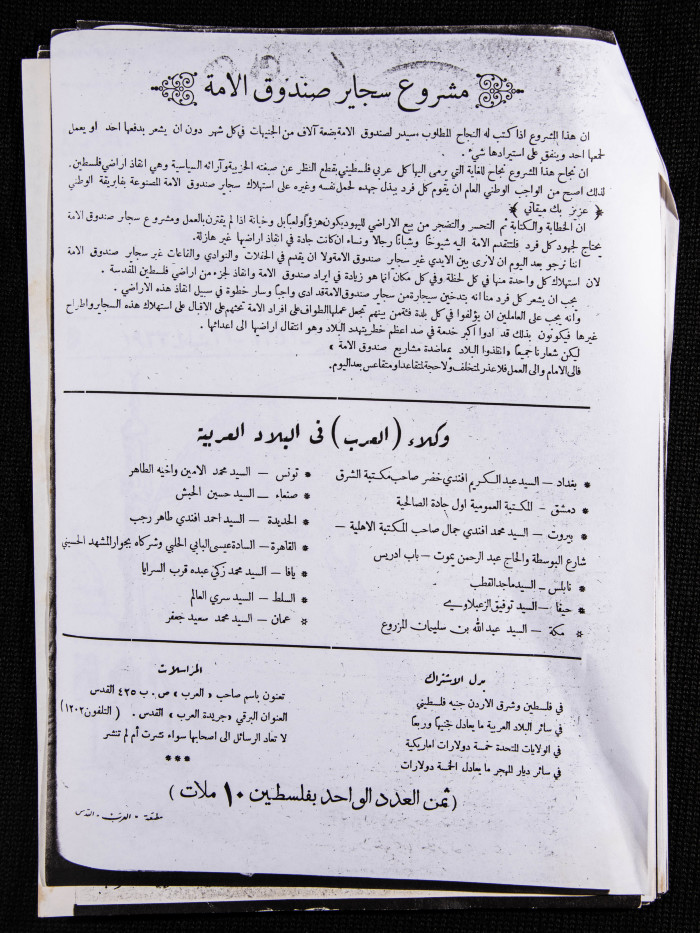 مشروع سجاير صندوق الامة
ان هذا المشروع اذا كتب له النجاح المطلوب، سيدر لصندوق الامة بضعة آلاف من الجنيهات في كل شهر دون ان يشعر بدفعها احد او يعمل
لجمعها احد وينفق على استيرادها شيء.
ان نجاح هذا المشروع نجاح للغاية التي يرمى اليها كل عربي فلسطيني بقطع النظر عن صبغته الحزبية وآرائه السياسية وهي انقاذ اراضي فلسطين.
لذلك اصبح من الواجب الوطني العام ان يقوم كل فرد ببذل جهده لحمل نفسه وغيره على استهلاك سجاير صندوق الامة المصنوعة بفابريقة الوطني
﴿ عزيز بك ميقاتي ﴾
ان الخطابة والكتابة ثم التحسر والتضجر من بيع الاراضي لليهود يكون هزؤا ولعبا بل وخيانة اذا لم يقترن بالعمل ومشروع سجاير صندوق الامة
يحتاج لجهود كل فرد فلتتقدم الامة اليه شيوخا وشبانا رجالا ونساء ان كانت جادة في انقاذ اراضيها غير هازلة.
اننا نرجو بعد اليوم ان لا نرى بين الايدي غير سجاير صندوق الامة ولا ان يقدم في الحفلات والنوادي والقاعات غير سجاير صندوق الامة
لان استهلاك كل واحدة منها في كل لحظة وفي كل مكان انما هو زيادة في ايراد صندوق الامة وانقاذ لجزء من اراضي فلسطين المقدسة.
يجب ان يشعر كل فرد منا انه بتدخين سيجارة من سجاير صندوق الامة قد ادى واجبا وسار خطوة في سبيل انقاذ هذه الاراضي.
وانه يجب على العاملين ان يؤلفوا في كل بلدة فئة من بينهم تجعل عملها الطواف على افراد الامة تحثهم على الاقبال على استهلاك هذه السجاير واطراح
غيرها فيكونون بذلك قد ادوا اكبر خدمة في ضد اعظم خطر يتهدد البلاد وهو انتقال اراضيها الى اعدائها.
ليكن شعارنا جميعا «انقذوا البلاد بمعاضدة مشاريع صندوق الامة»
فالى الامام والى العمل فلا عذر لمتخلف ولا حجة لمتقاعد او متقاعس بعد اليوم.
وكلاء (العرب) في البلاد العربية
* بغداد – السيد عبد الكريم افندي خضر صاحب مكتبة الشرق
* دمشق – المكتبة العمومية اول جادة الصالحية
* بيروت – السيد محمد افندي جمال صاحب المكتبة الاهلية –
شارع البوسطة والحاج عبد الرحمن بموت – باب ادريس
* نابلس – السيد ماجد القطب
* حيفا – السيد توفيق الزعبلاوي
* مكة – السيد عبد الله بن سليمان المزروع
* تونس – السيد محمد الامين واخيه الطاهر
* صنعاء – السيد حسين الحبش
* الحديدة – السيد احمد افندي طاهر رجب
* القاهرة – السادة عيسى البابي الحلبي وشركاه بجوار المشهد الحسيني
* يافا – السيد محمد زكي عبده قرب السرايا
* السلط – السيد سري العالم
* عمان – السيد محمد سعيد جعفر
بدل الاشتراك
في فلسطين وشرق الاردن جنيه فلسطيني
في سائر البلاد العربية ما يعادل جنيها وربعا
في الولايات المتحدة خمسة دولارات اماريكية
في سائر ديار المهجر ما يعادل الخمسة دولارات
المراسلات
تعنون باسم صاحب «العرب» ص. ب ٤٢٥ القدس
العنوان البرقي «جريدة العرب» القدس. (التلفون ١٢٠٢)
لا تعاد الرسائل الى اصحابها سواء نشرت أم لم تنشر
***
(ثمن العدد الواحد بفلسطين ١٠ ملات)
مطبعة - العرب - القدس